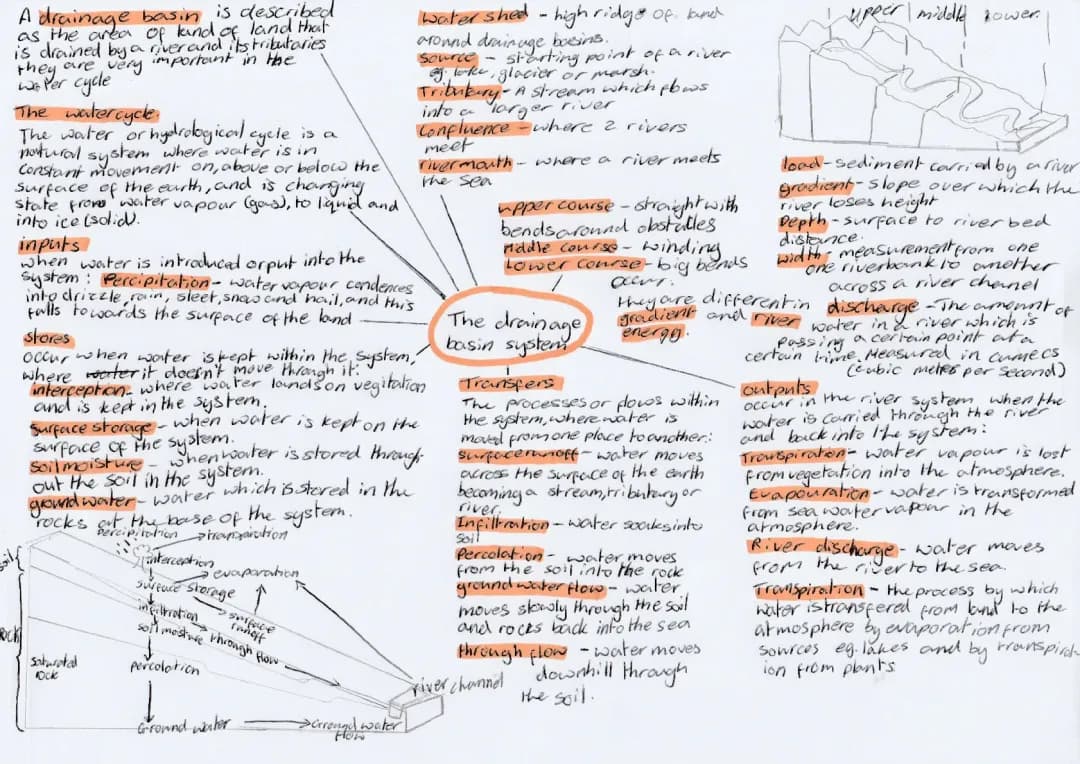 A drainage basin is described
as the area of land of land that
is drained by a river and its tributaries
they are very important in the
water cycle
The watercycle.
The water or hydrological cycle is a
natural system where water is in
constant movement on, above or below the
surface of the earth, and is changing
state from water vapour (gas), to liquid and
into ice (solid).
inputs
when water is introduced or put into the
system: Percipitation - water vapour condences
into drizzle, rain, sleet, snow and hail, and this
falls towards the surface of the land
stores
occur when water is kept within the system,
where water it doesn't move through it:
interception - where water lands on vegitation
and is kept in the system.
surface storage - when water is kept on the
surface of the system.
soil moisture - when water is stored through-
out the soil in the system.
ground water - water which is stored in the
rocks at the base of the system.
percipitation
transpiration
soil
interception
evaporation
surface storage
infiltration
surface
runoff
soil moisture
through flow
rock
saturated
rock
percolation
river channel
Ground water
Ground water
flow
Water shed - high ridge of land
around drainage basins.
source - starting point of a river
eg. lake, glacier or marsh.
Tributary - A stream which flows
into a larger river
Confluence - where 2 rivers
meet
river mouth - where a river meets
the sea
upper course - straight with
bends around obstacles
Middle course - winding
Lower course - big bends
occur.
they are different in
gradient and river
energy.
The drainage
basin system
Transfers
The processes or flows within
the system, where water is
moved from one place to another:
surface runoff - water moves
across the surface of the earth
becoming a stream, tributary or
river.
Infiltration - water soaks into
soil
Percolation - water moves
from the soil into the rock
ground water flow - water
moves slowly through the soil
and rocks back into the sea
through flow - water moves
downhill through
the soil.
upper middle lower.
load - sediment carried by a river
gradient - slope over which the
river loses height
Depth - surface to river bed
distance.
width - measurement from one
one riverbank to another
across a river chanel
discharge - The amount of
water in a river which is
passing a certain point at a
certain time. Measured in cumecs
(cubic meter per second)
outputs
occur in the river system when the
water is carried through the river
and back into the system:
Transpiration - water vapour is lost
from vegetation into the atmosphere.
Evapouration - water is transformed
from sea water vapour in the
atmosphere.
River discharge - water moves
from the river to the sea.
Transpiration - the process by which
water is transfered from land to the
atmosphere by evaporation from
sources eg. lakes and by transpirat
ion from plants